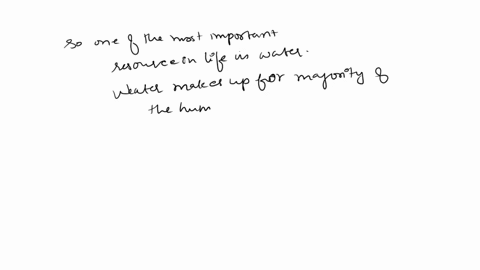 so one of the most important
resource in life is water.
Water makes up for majority of
the hum